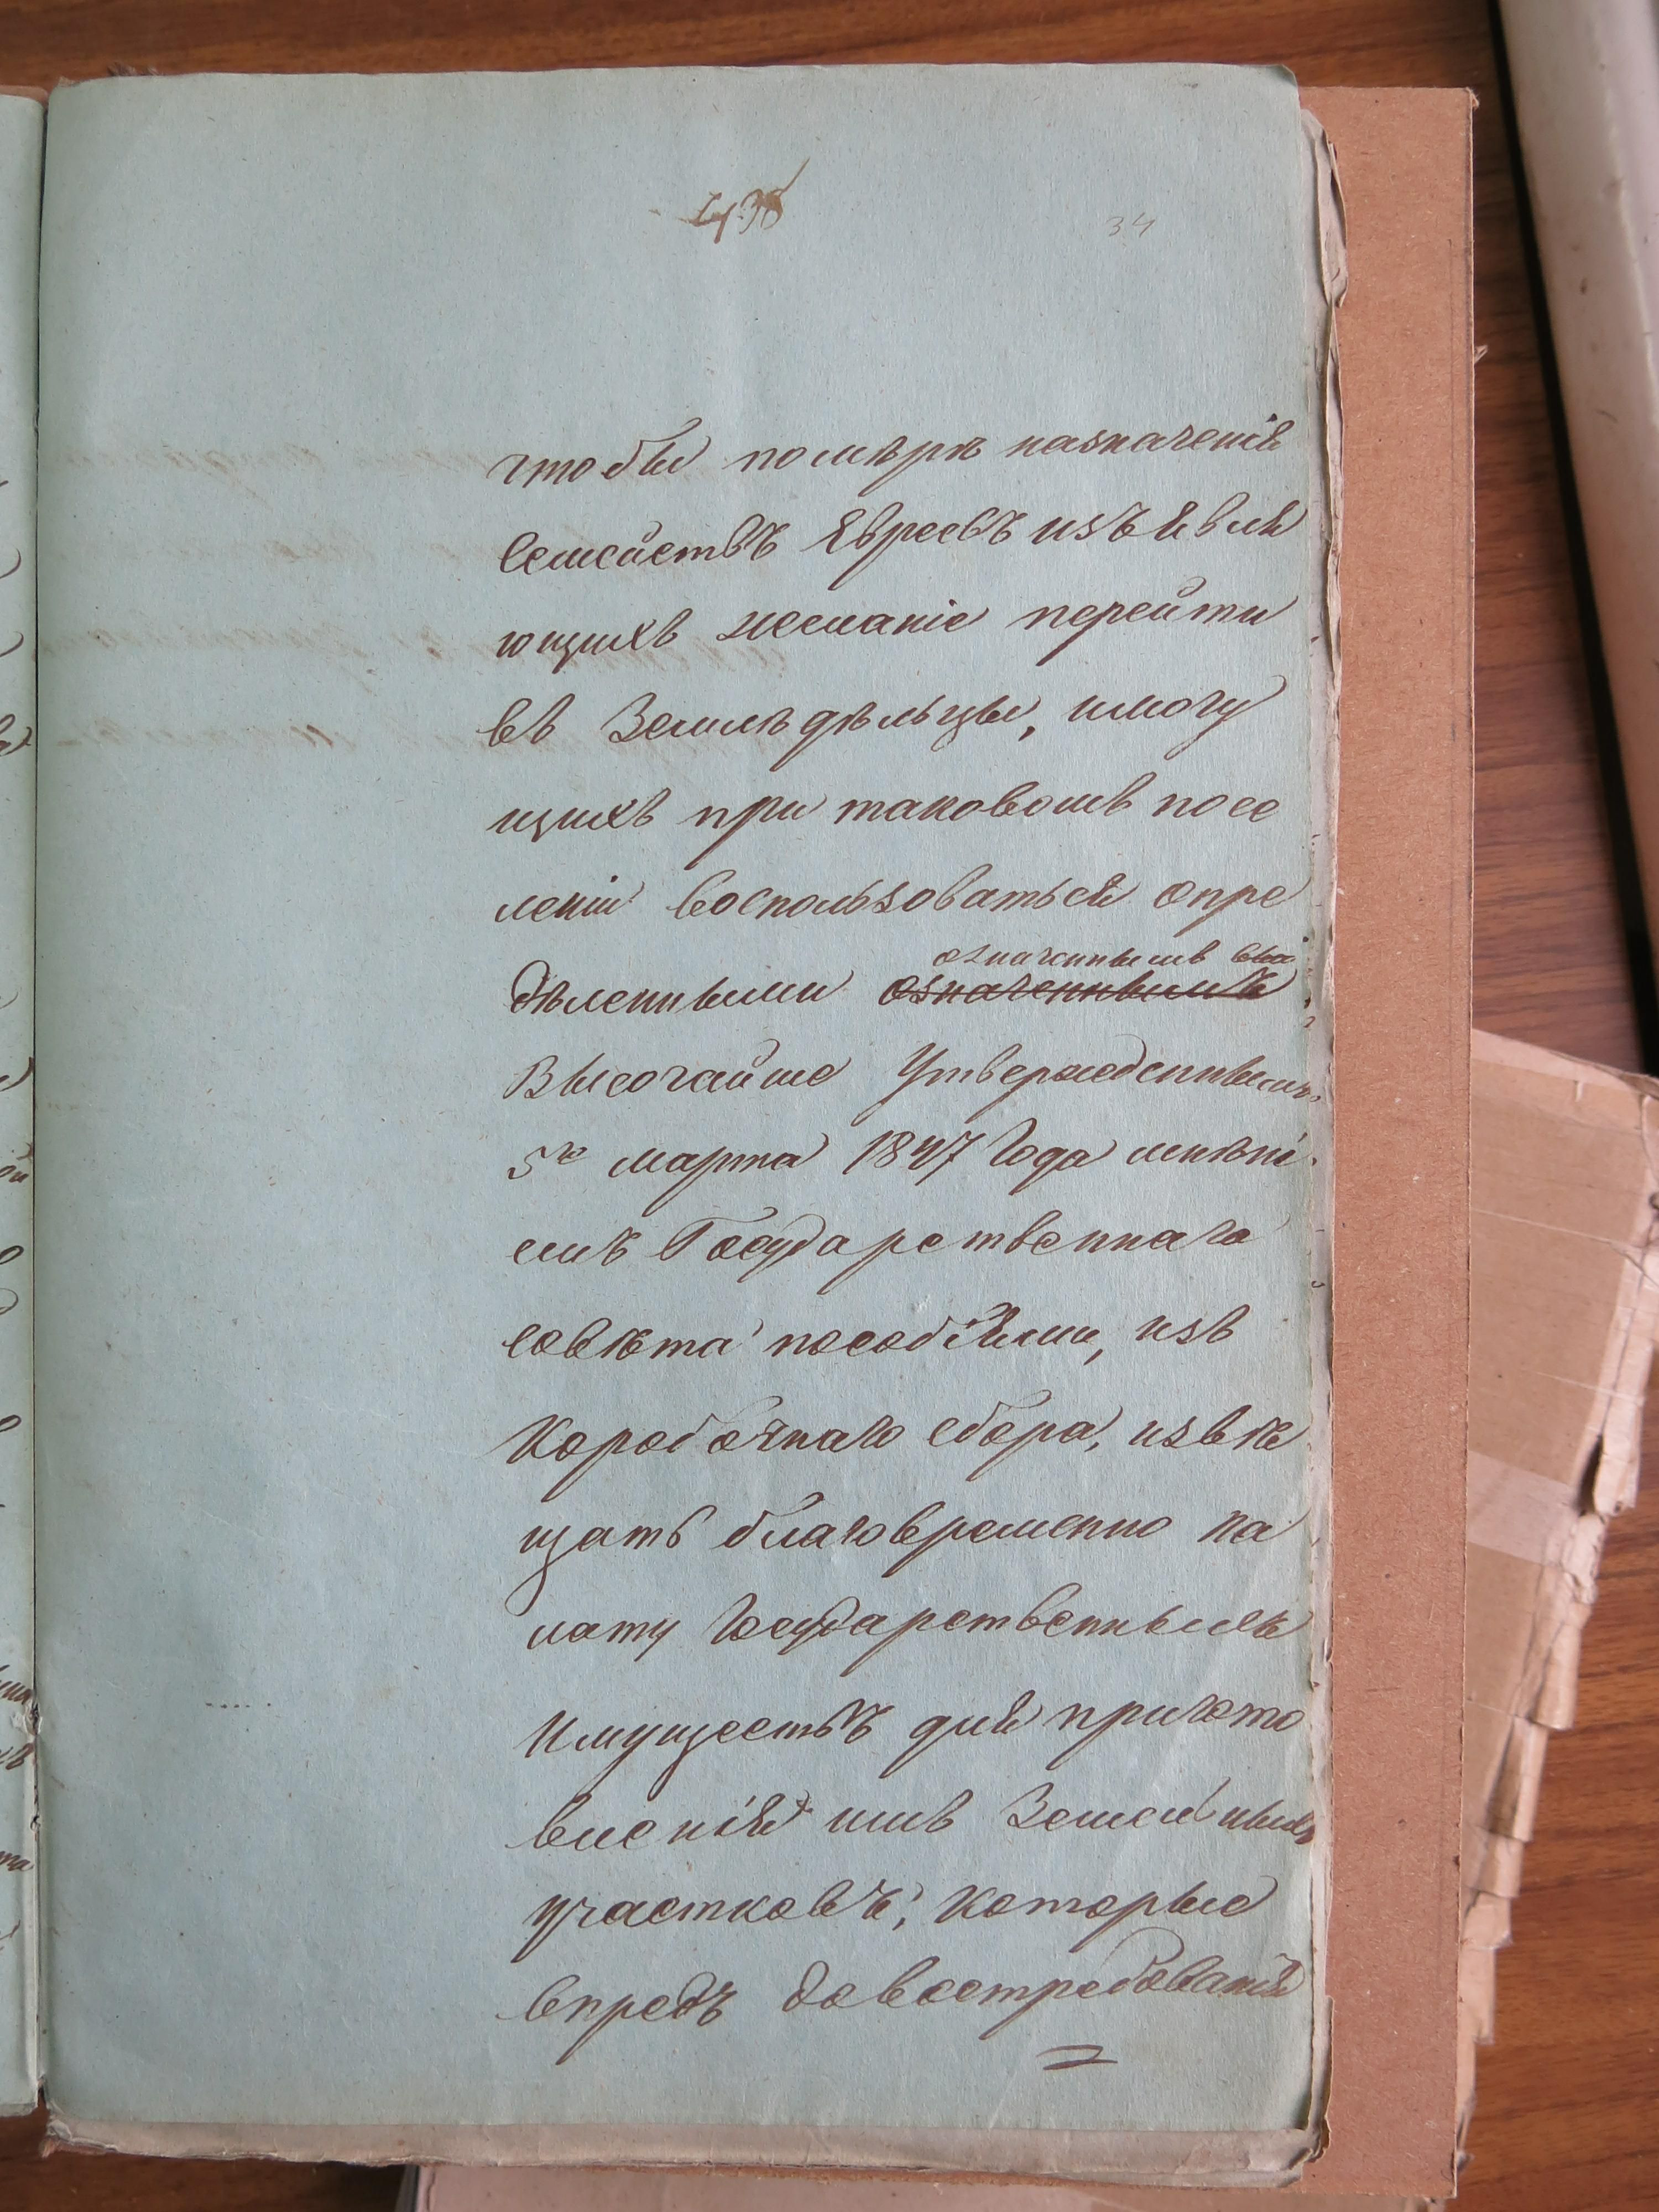 438
34
чтобы помѣрѣ назначенія
Семействъ Евреевъ изъявля
ющихъ желаніе перейти
въ Земледѣльцы, имогу
щихъ при таковомъ посе
леніи воспользоваться опре
означеннымъ въ
дѣленными означеннымъ
Высочайше Утвержденнымъ
5го марта 1847 Года мнѣні
емъ Государственнаго
совѣта пособіями, изъ
Коробочнаго сбора, извѣ
щать благовременно па
лату Государственныхъ
Имуществъ для пригото
вленія имъ Земельныхъ
участковъ, которые
впредь довостребованія